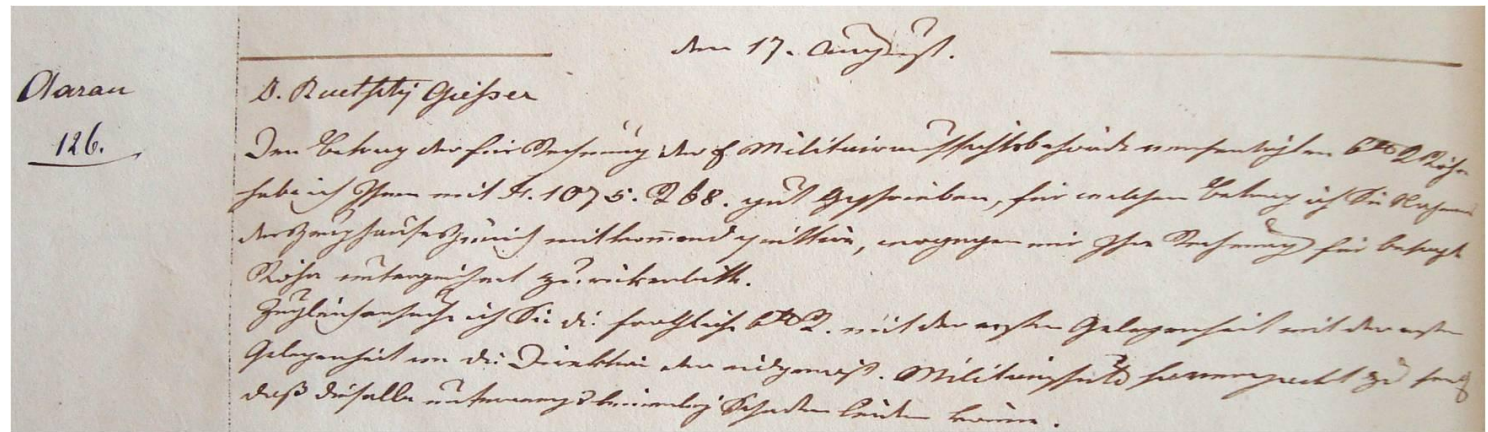 den 17. August.
Aarau
126.
D. Ruetschj Giesser
Den Betrag der für Rechnung der Militairaufsichtsbehörde verfertigten 6 Röhr
habe ich Ihnen mit Fr. 1075. 68. gut geschrieben, für welchen Betrag ich Sie Namens
des Zeughauses Zürich mitkommend quittire, wogegen mir Ihre Rechnung für besagte
Röhr unterzeichnet zurückerbitte.
Zugleich ersuche ich Sie die fragliche 6 mit der ersten Gelegenheit mit der ersten
Gelegenheit an die Direktion der eidgenöss. Militairschule zu
daß dieselbe unterwegs keinerley Schaden leiden könne.